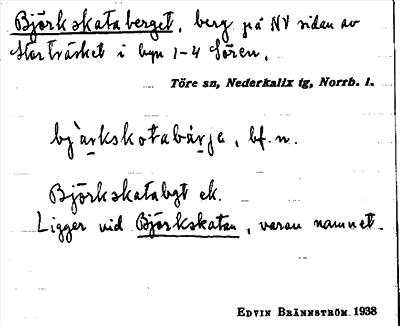 Björkskataberget, berg på NV sidan av
Storträsket i byn 1-4 Sören.
Töre sn, Nederkalix tg, Norrb. l.
bjạ̀rkskotabạ́rja, bf. n.
Björkskatabgt ek.
Ligger vid Björkskatan, varav namnet.
EDVIN BRÄNNSTRÖM 1938